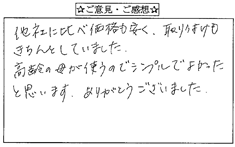 ☆ご意見・ご感想☆
他社に比べ価格も安く、取りつけも
きちんとしていました。
高齢の母が使うのでシンプルでよかった
と思います。ありがとうございました。